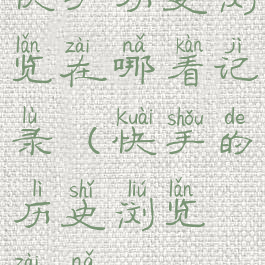 快手历史浏
lǎn zài nǎ kàn jì
览在哪看记
lù kuài shǒu de
录（快手的
lì shǐ liú lǎn
历史浏览
zài nǎ